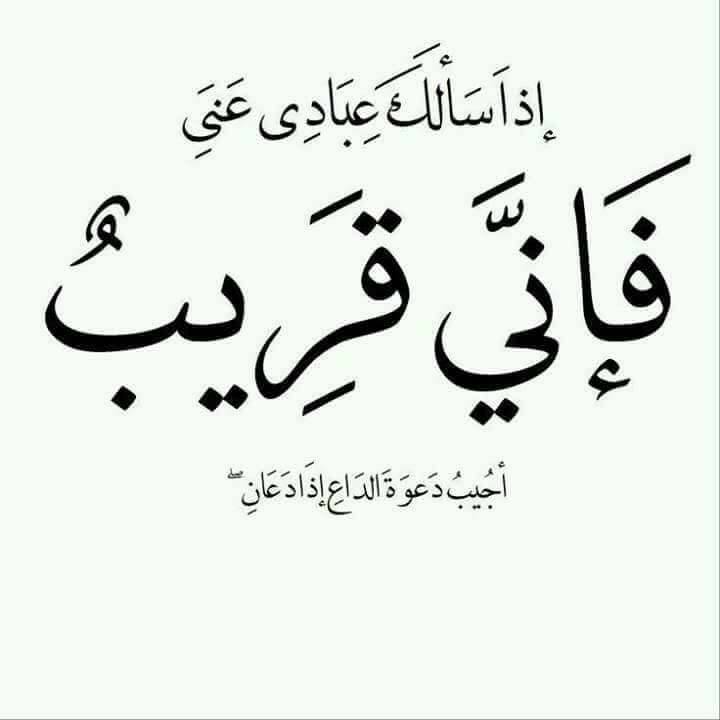 إذاَ سَألَكَ عِبَادِى عَنيَِ
فَإنيَّ قَرِيبٌ
أجُيبُ دَعوَةَ الدَاعِ إذَا دَعَانِ ۖ